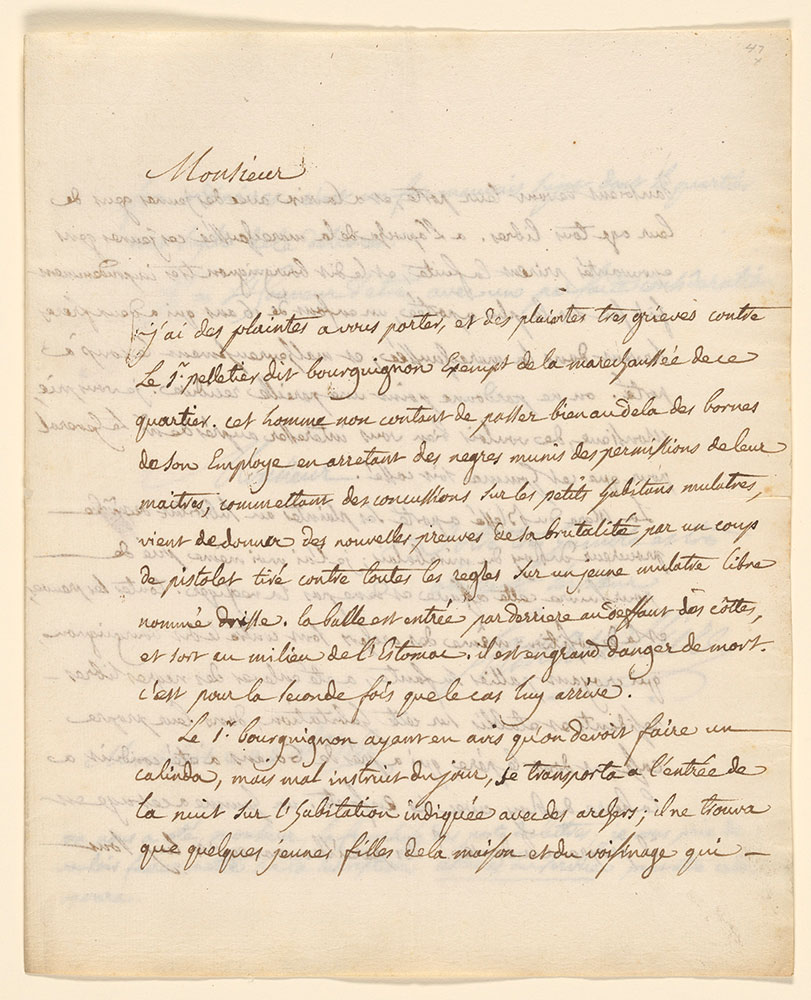 47
Monsieur
j'ai des plaintes a vous porter, et des plaintes tres grieves contre
Le Sr. pelletier dit bourguignon Exempt de la marechaussée de ce
quartier. cet homme non contant de passer bien au dela des bornes
de son Employe en arretant des negres munis des permissions de leur
maitres, commettant des concussions sur les petits habitans mulatres,
vient de donner des nouvelles preuves de sa brutalité par un coup
de pistolet tiré contre toutes les regles sur un jeune mulatre libre
nommé drisse. la balle est entrée par derriere au deffaut des côttes,
et sort au milieu de l'Estomac. il est en grand danger de mort.
c'est pour la seconde fois que le cas luy arrive.
Le Sr. bourguignon ayant en avis qu'on devoit faire un
calinda, mais mal instruit du jour, se transporta a l'entrée de
la nuit sur l'habitation indiquée avec des archers; il ne trouva
que quelques jeunes filles de la maison et du voisinage qui —